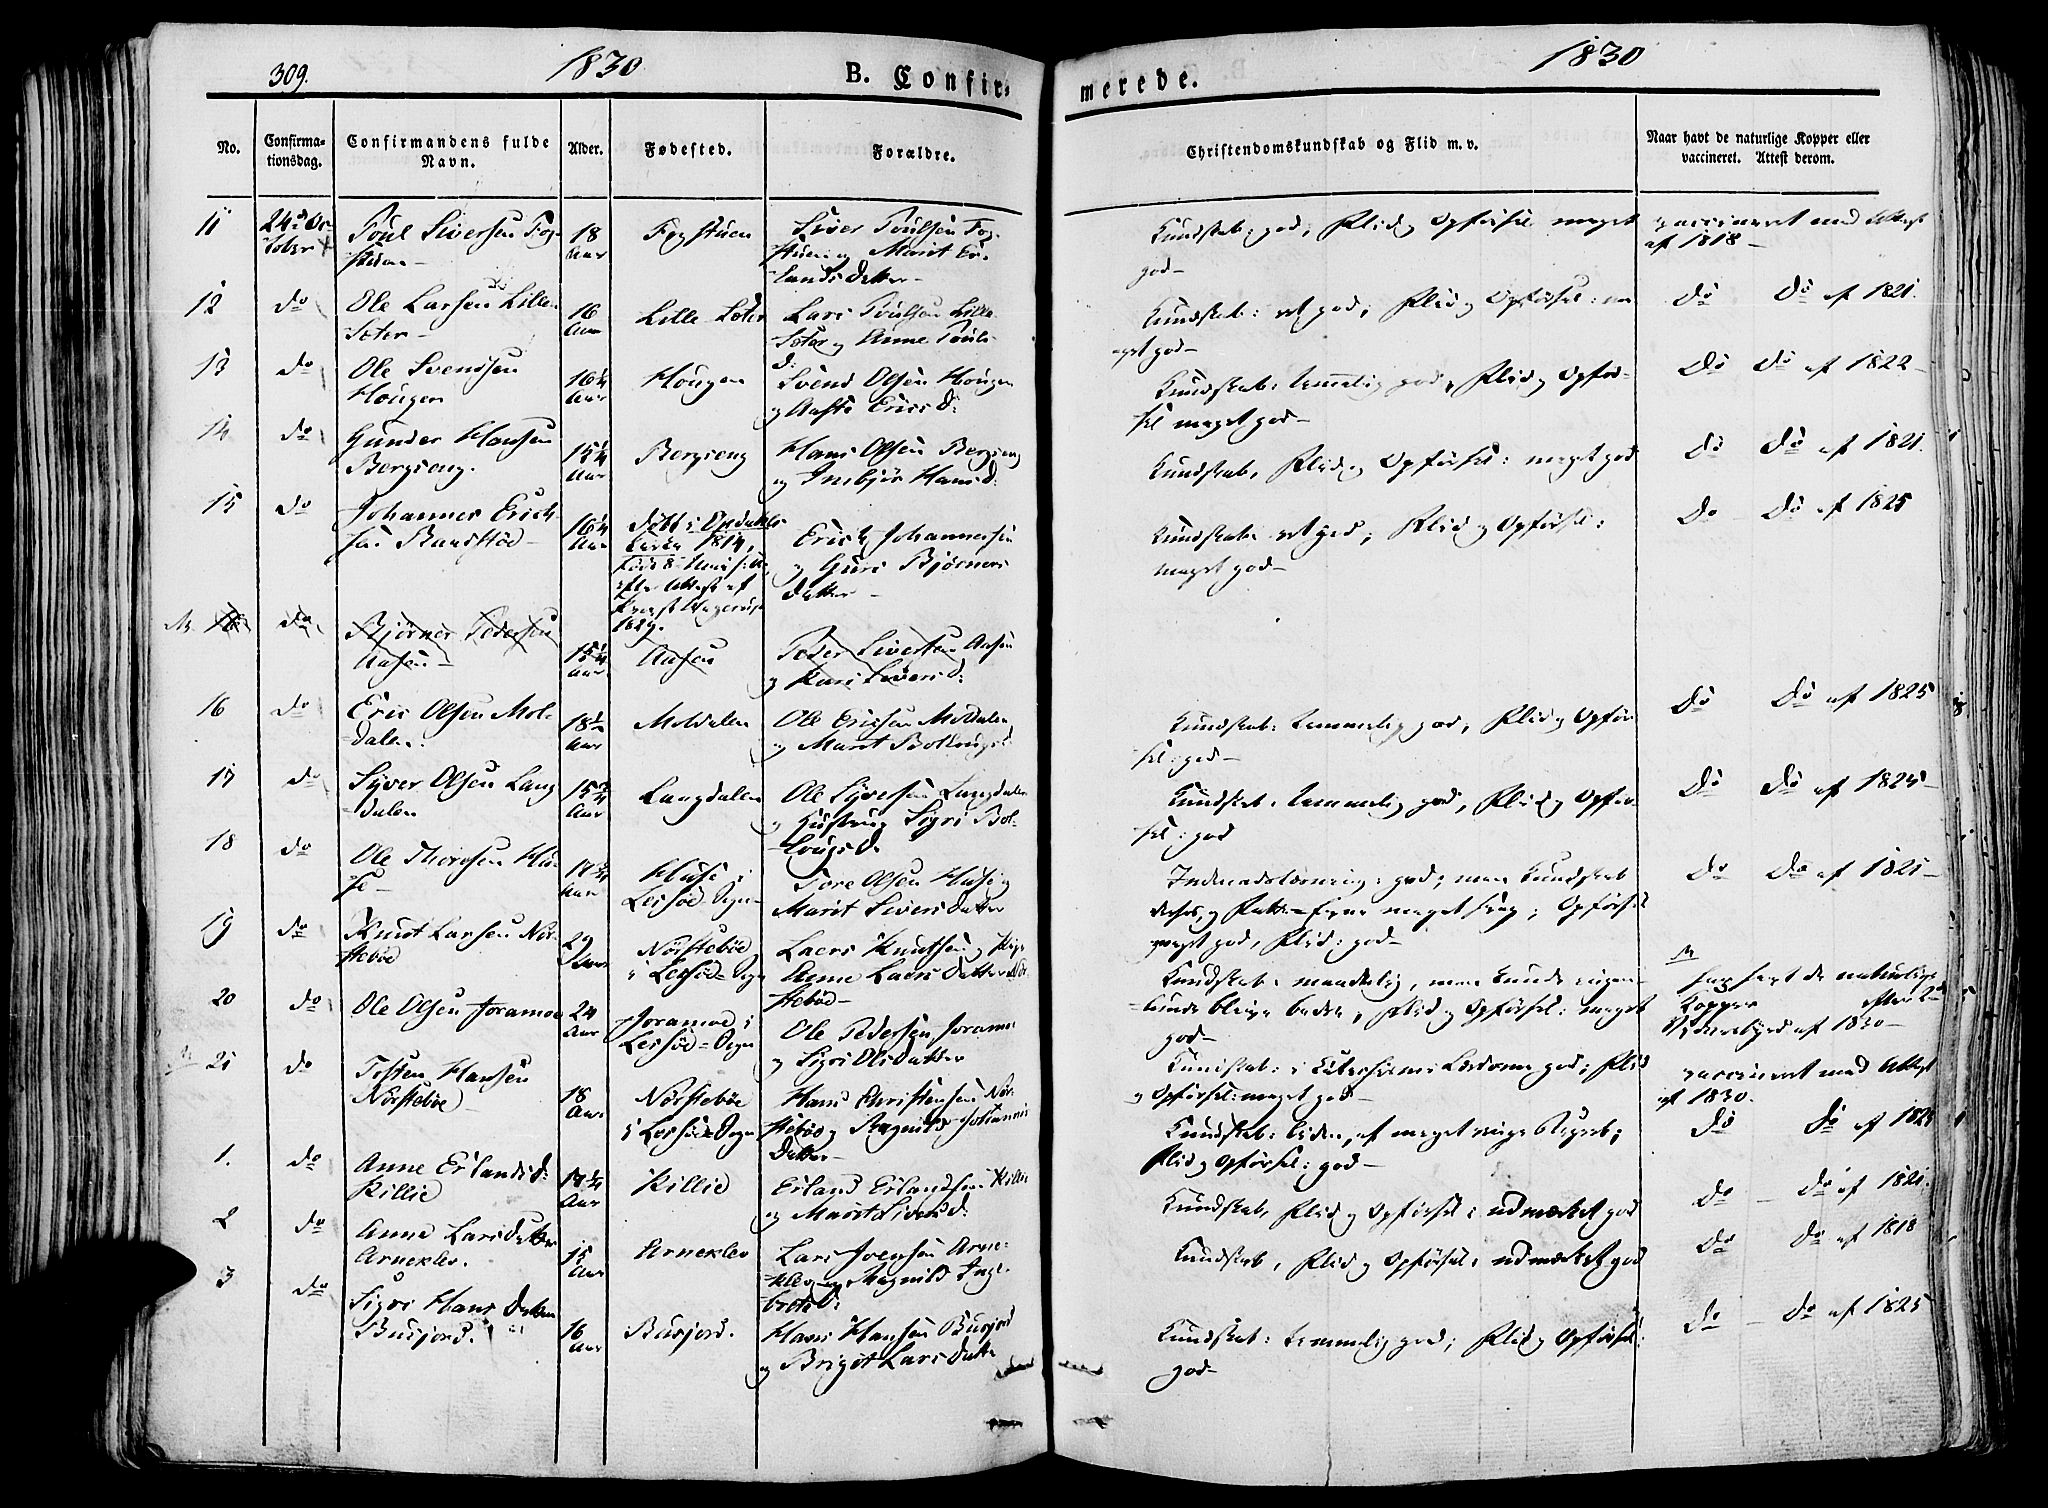 309.
1830
B. Confir=
merede.
1830
No.
Confirma-
tionsdag.
Confirmandens fulde
Navn.
Alder.
Fødested.
Forældre.
Christendomskundskab og Flid m. v.
Naar havt de naturlige Kopper eller
vaccineret. Attest derom.
11
24de Oc-
tober
Poul Siversen Fog-
stuen
18
Aar
Fogstuen
Siver Poulsen Fog-
stuen og Marit Er-
landsdatter
Kundskab: god, Flid og Opførsel meget
god
vaccineret med Attest
af 1818
12
do
Ole Larsen Lille-
seter
16
Aar
Lille Seter
Lars Poulsen Lille-
seter og Anne Pouls
D:
Kundskab: ret god; Flid og Opførsel: me-
get god
Do Do af 1821.
13
do
Ole Svendsen
Hougen
16¼
Aar
Hougen
Svend Olsen Hougen
og Aaste Erics D:
Kundskab: temmelig god, Flid og Opfør-
sel meget god
Do Do af 1822
14
do
Gunder Hansen
Bergseng.
15¼
Aar
Bergseng
Hans Olsen Bergseng
og Ingebjør Hans D:
Kundskab, Flid og Opførsel: meget god
Do Do af 1821.
15
do
Johannes Erich-
sen Randstød
16¼
Aar
døbt i Opdahls
Kirke 1814,
efter Attest af
1829.
Erich Johannesen
og Guri Bjørners
datter
Kundskab: ret god, Flid og Opførsel:
meget god
Do Do af 1825
16
do
Bjørner Pedersen
Aasen
15¼
Aar
Aasen
Peder Siversen Aasen
og Kari Sivers D:
16
do
Eric Olsen Mol-
dalen.
18½
Aar
Moldalen
Ole Ericsen Moldalen
og Marit
Kundskab: temmelig god, Flid og Opfør-
sel: god
Do Do af 1825
17
do
Syver Olsen Lang
dalen
15¾
Aar
Langdalen
Ole Syversen Langdalen
og Hustrue Sigri Bot-
tougsD.
Kundskab: temmelig god, Flid og Opfør-
sel: god
Do Do af 1825
18
do
Ole Thoresen Hu-
se
17¾
Aar
Huse i
Lessøe Sogn
Tore Olsen Huse og
Marit Siversdatter
Indenadslæsning: god; men Kundskab
meget svag; Opførsel
meget god, Flid: god
Do Do af 1821
19
do
Knud Larsen Nør-
stebøe
29
Aar
Nørstebøe
i Lessøe-Sogn
Laers Knudsen og
Anne Laers Datter Nør-
stebøe
Kundskab: maadelig, men kunde ingen-
lunde blive bedre, Flid og Opførsel: meget
god
har havt de naturlige
Kopper efter
af 1830
20
do
Ole Olsen Joramoe
24
Aar
Joramoe i
Lessøe-Sogn
Ole Pedersen Joramoe
og Sigri Olsdatter
god; Flid
og Opførsel: meget god
vaccineret med Attest
af 1830.
21
do
Tosten Hansen
Nørstebøe
18
Aar
Nørstebøe
i Lessøe Sogn
Hans Christensen Nør-
stebøe og Ragnild Johannis
Datter
Kundskab: liden, af meget ringe Begreb;
Flid og Opførsel: god
Do Do af 1824
1.
do
Anne ErlandsD:
Killie
17¼
Aar
Killie
Erland Erlandsen Killie
og Marit SiversD:
Kundskab, Flid og Opførsel: udmærket god
Do Do af 1821.
2
do
Anne Larsdatter
Arneklev.
15
Aar
Arneklev
Lars Joensen Arne-
klev og Magnild Inge-
brets D:
Kundskab, Flid og Opførsel: udmærket god
Do Do af 1818
3
do
Sigri Hans Datter
Busjord.
16
Aar
Busjord.
Hans Hansen Busjord
og Brigit Lars Datter
Kundskab: temmelig god; Flid og Opførsel:
god
Do Do af 1825